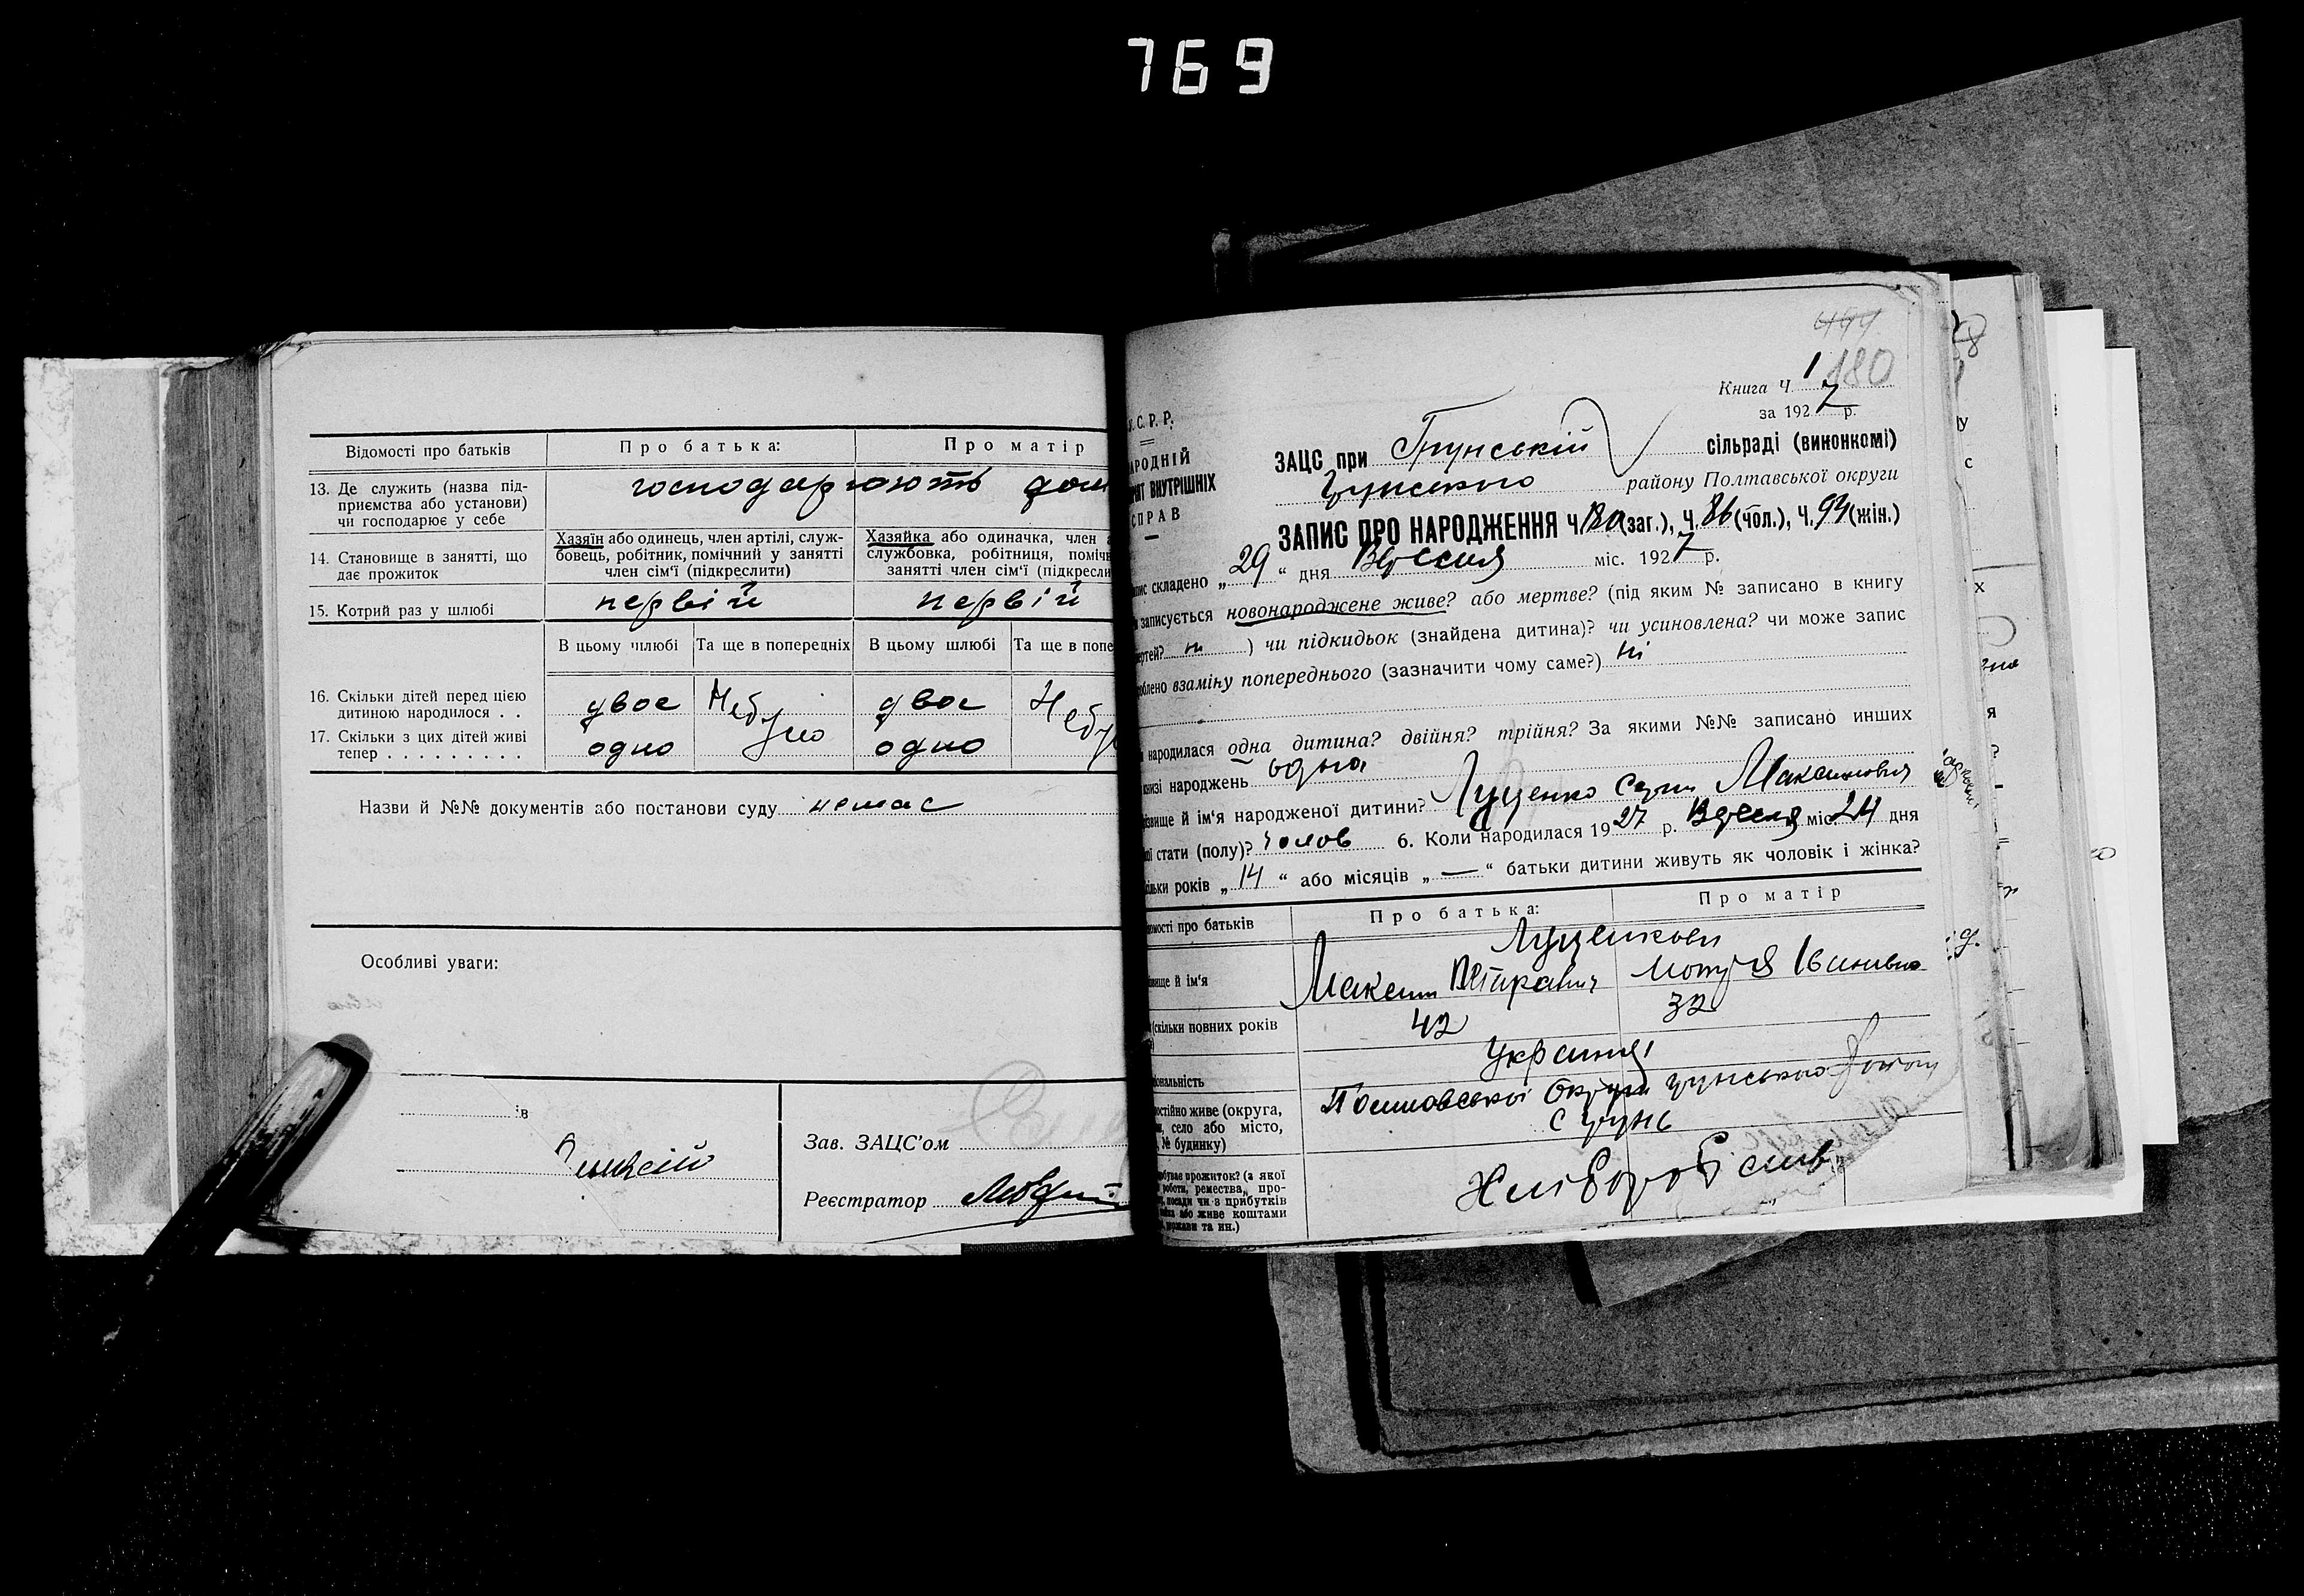 769
Відомості про батьків
Про батька:
Про матір
13. Де служить (назва під-
приємства або установи)
чи господарює у себе
господарюють дом
14. Становище в занятті, що
дає прожиток
Хазяїн або одинець, член артілі, служ-
бовець, робітник, помічний у занятті
член сім'ї (підкреслити)
Хазяйка або одиначка, член а
службовка, робітниця, поміч
занятті член сім'ї (підкресли
15. Котрий раз у шлюбі
первій
первій
В цьому шлюбі
Та ще в попередніх
В цьому шлюбі
Та ще в попе
16. Скільки дітей перед цією
дитиною народилося . .
двоє
Небуло
двоє
Небу
17. Скільки з цих дітей живі
тепер . . . . . . . . .
одно
одно
Назви й №№ документів або постанови суду немає
Особливі уваги:
ів
Зав. ЗАЦС'ом
Реєстратор
180
Книга Ч. 1
за 1927 р.
С. Р. Р.
АРОДНІЙ
РІЯТ ВНУТРІШНІХ
СПРАВ
ЗАЦС при Грунській сільраді (виконкомі)
Грунського району Полтавської округи
ЗАПИС ПРО НАРОДЖЕННЯ Ч. 180 (заг.), Ч. 86 (чол.), Ч. 94 (жін.)
пис складено „29“ дня Вересня міс. 1927 р.
записується новонароджене живе? або мертве? (під яким № записано в книгу
ертей? ні ) чи підкидьок (знайдена дитина)? чи усиновлена? чи може запис
облено взаміну попереднього (зазначити чому саме?) ні
народилася одна дитина? двійня? трійня? За якими №№ записано инших
книзі народжень одна
ізвище й ім'я народженої дитини? Луценко Максимович
ої стати (полу)? чолов 6. Коли народилася 1927 р. Вересня міс. 24 дня
ільки років „14“ або місяців „—“ батьки дитини живуть як чоловік і жінка?
омості про батьків
Про батька:
Про матір
Луценкови
ізвище й ім'я
Максим Петрович
Мотря Іванівна
(скільки повних років
42
32
Українці
іональність
остійно живе (округа,
н, село або місто,
, № будинку)
Полтавської Округи Грунського району
с Грунь
обуває прожиток? (з якої
роботи, ремества, про-
, посади чи з прибутків
або живе коштами
держави та ин.)
Хліборобство